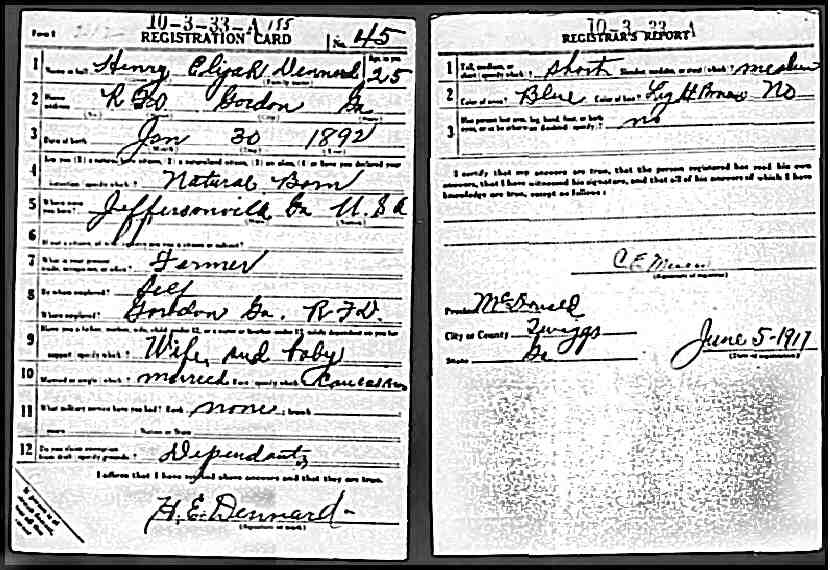 10-3-33-A 155
Form 1
REGISTRATION CARD No. 45
1 Name in full Henry Elijah Dennard Age, in yrs 25
(Family name)
2 Home address R FD Gordon Ga
(No.) (City) (State)
3 Date of birth Jan 30 1892
(Month) (Day) (Year)
4 Are you (1) a natural born citizen, (2) a naturalized citizen, (3) an alien, (4) or have you declared your
intention (specify which)? Natural Born
5 Where were you born? Jeffersonville Ga U.S.A
(State) (Nation)
6 If not a citizen, of what country are you a citizen or subject?
7 What is your present trade, occupation, or office? Farmer
8 By whom employed? Self
Where employed? Gordon Ga. R.F.D.
9 Have you a father, mother, wife, child under 12, or a sister or brother under 12, solely dependent on you for
support (specify which)? Wife and baby
10 Married or single (which)? married Race (specify which)? Caucasian
11 What military service have you had? Rank none branch
years Nation or State
12 Do you claim exemption from draft (specify grounds)? Dependants
I affirm that I have verified above answers and that they are true.
H. E. Dennard
(Signature or mark)
10 3 33 A
REGISTRAR'S REPORT
1 Tall, medium, or short (specify which)? short Slender, medium, or stout (which)? medium
2 Color of eyes? Blue Color of hair? Light Brown No
3 Has person lost arm, leg, hand, foot, or both eyes, or is he otherwise disabled (specify)? no
I certify that my answers are true, that the person registered has read his own
answers, that I have witnessed his signature, and that all of his answers of which I have
knowledge are true, except as follows:
C. E.
(Signature of registrar)
Precinct McDonald
City or County Twiggs
State Ga
June 5-1917
(Date of registration)